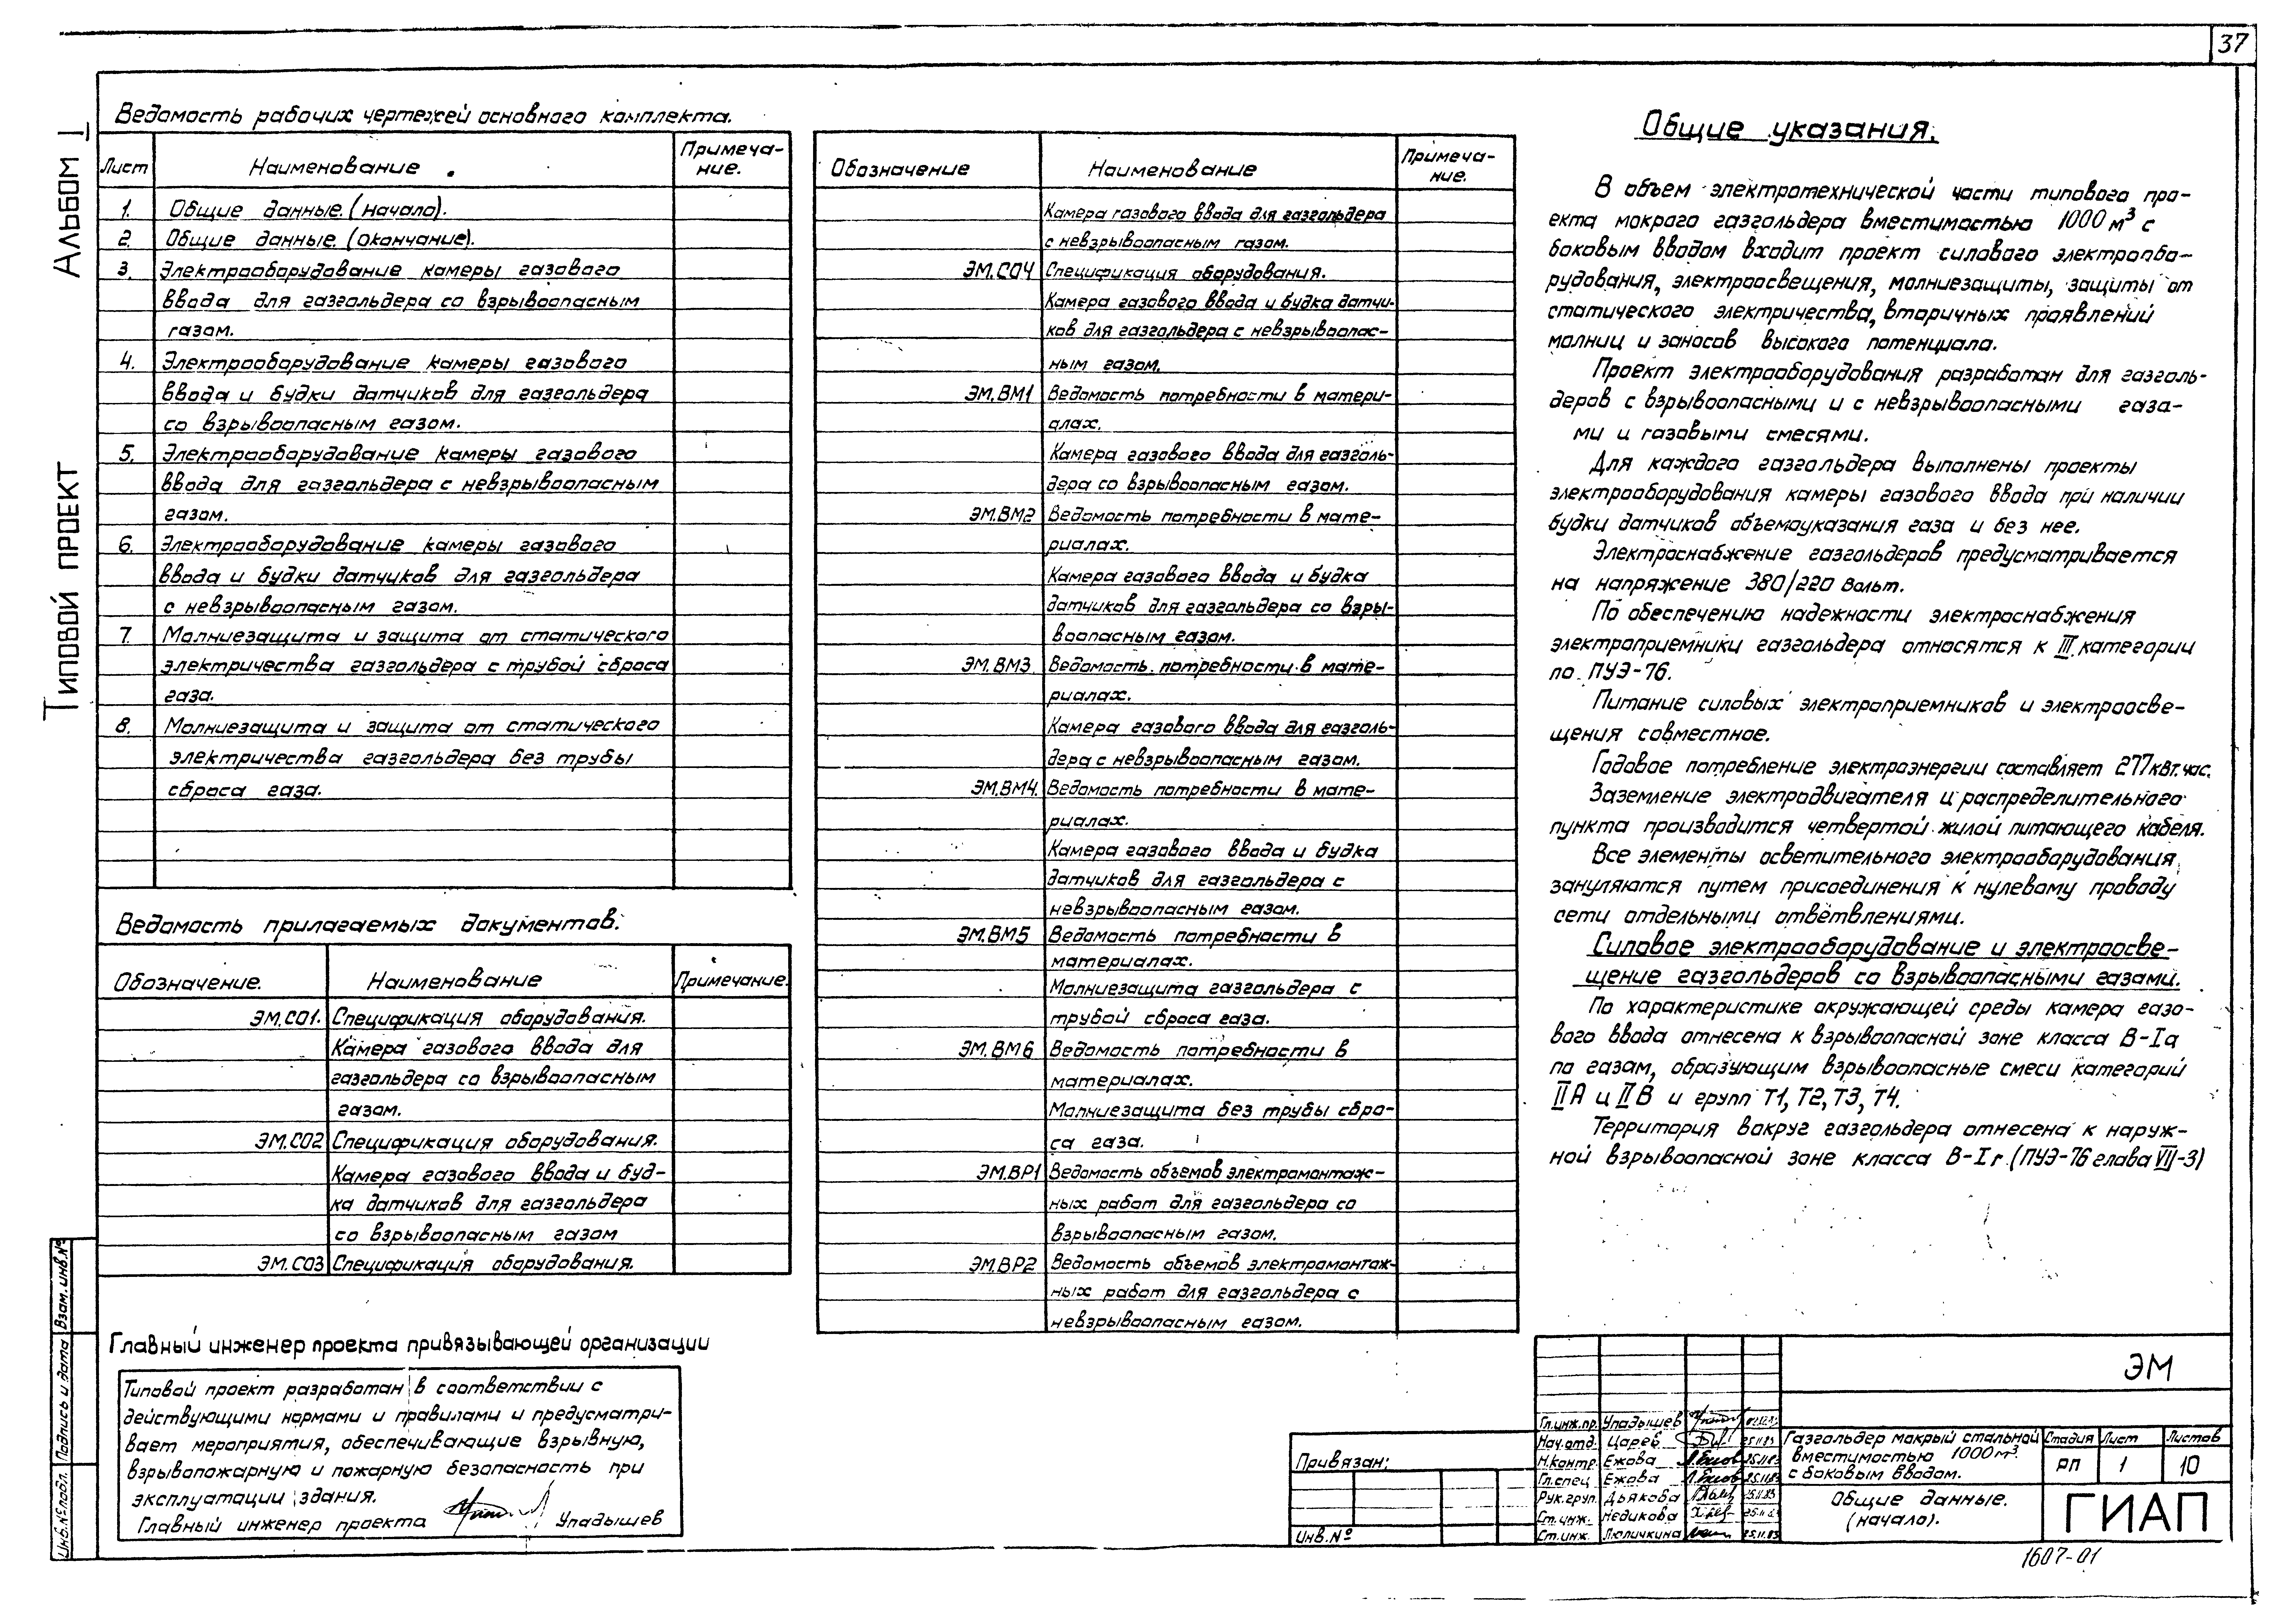 37
Альбом I
Типовой проект
Ведомость рабочих чертежей основного комплекта.
Лист Наименование Примеча-
ние.
1. Общие данные. (начало).
2. Общие данные. (окончание).
3. Электрооборудование камеры газового
ввода для газгольдера со взрывоопасным
газом.
4. Электрооборудование камеры газового
ввода и будки датчиков для газгольдера
со взрывоопасным газом.
5. Электрооборудование камеры газового
ввода для газгольдера с невзрывоопасным
газом.
6. Электрооборудование камеры газового
ввода и будки датчиков для газгольдера
с невзрывоопасным газом.
7. Молниезащита и защита от статического
электричества газгольдера с трубой сброса
газа.
8. Молниезащита и защита от статического
электричества газгольдера без трубы
сброса газа.
Ведомость прилагаемых документов.
Обозначение. Наименование Примечание.
ЭМ.СО1. Спецификация оборудования.
Камера газового ввода для
газгольдера со взрывоопасным
газом.
ЭМ.СО2 Спецификация оборудования.
Камера газового ввода и буд-
ка датчиков для газгольдера
со взрывоопасным газом
ЭМ.СО3 Спецификация оборудования.
Главный инженер проекта привязывающей организации
Типовой проект разработан в соответствии с
действующими нормами и правилами и предусматри-
вает мероприятия, обеспечивающие взрывную,
взрывопожарную и пожарную безопасность при
эксплуатации здания.
Главный инженер проекта Упадышев
Обозначение Наименование Примеча-
ние.
Камера газового ввода для газгольдера
с невзрывоопасным газом.
ЭМ.СО4 Спецификация оборудования.
Камера газового ввода и будка датчи-
ков для газгольдера с невзрывоопас-
ным газом.
ЭМ.ВМ1 Ведомость потребности в матери-
алах.
Камера газового ввода для газголь-
дера со взрывоопасным газом.
ЭМ.ВМ2 Ведомость потребности в мате-
риалах.
Камера газового ввода и будка
датчиков для газгольдера со взры-
воопасным газом.
ЭМ.ВМ3. Ведомость потребности в мате-
риалах.
Камера газового ввода для газголь-
дера с невзрывоопасным газом.
ЭМ.ВМ4. Ведомость потребности в мате-
риалах.
Камера газового ввода и будка
датчиков для газгольдера с
невзрывоопасным газом.
ЭМ.ВМ5 Ведомость потребности в
материалах.
Молниезащита газгольдера с
трубой сброса газа.
ЭМ.ВМ6 Ведомость потребности в
материалах.
Молниезащита без трубы сбро-
са газа.
ЭМ.ВР1 Ведомость объемов электромонтаж-
ных работ для газгольдера со
взрывоопасным газом.
ЭМ.ВР2 Ведомость объемов электромонтаж-
ных работ для газгольдера с
невзрывоопасным газом.
Общие указания.
В объем электротехнической части типового про-
екта мокрого газгольдера вместимостью 1000 м³ с
боковым вводом входит проект силового электрообо-
рудования, электроосвещения, молниезащиты, защиты от
статического электричества, вторичных проявлений
молний и заносов высокого потенциала.
Проект электрооборудования разработан для газголь-
деров с взрывоопасными и с невзрывоопасными газа-
ми и газовыми смесями.
Для каждого газгольдера выполнены проекты
электрооборудования камеры газового ввода при наличии
будки датчиков объемоуказания газа и без нее.
Электроснабжение газгольдеров предусматривается
на напряжение 380/220 вольт.
По обеспечению надежности электроснабжения
электроприемники газгольдера относятся к III категории
по ПУЭ-76.
Питание силовых электроприемников и электроосве-
щения совместное.
Годовое потребление электроэнергии составляет 277 квт.час.
Заземление электродвигателя и распределительного
пункта производится четвертой жилой питающего кабеля.
Все элементы осветительного электрооборудования
зануляются путем присоединения к нулевому проводу
сети отдельными ответвлениями.
Силовое электрооборудование и электроосве-
щение газгольдеров со взрывоопасными газами.
По характеристике окружающей среды камера газо-
вого ввода отнесена к взрывоопасной зоне класса В-Iа
по газам, образующим взрывоопасные смеси категорий
IIА и IIВ и групп Т1, Т2, Т3, Т4.
Территория вокруг газгольдера отнесена к наруж-
ной взрывоопасной зоне класса В-Iг. (ПУЭ-76 глава VII-3)
Взам.инв.№
Подпись и дата
Инв.№ подл.
Привязан:
Инв.№
ЭМ
Гл.инж.пр. Упадышев
Нач.отд. Царев 25.11.83
Н.контр. Ежова 25.11.83
Гл.спец Ежова 25.11.83
Рук.груп. Дьякова 25.11.83
Ст.инж. Недикова 25.11.83
Ст.инж. Люличкина 25.11.83
Газгольдер мокрый стальной
вместимостью 1000 м³
с боковым вводом.
Стадия Лист Листов
РП 1 10
Общие данные.
(начало).
ГИАП
1607-01